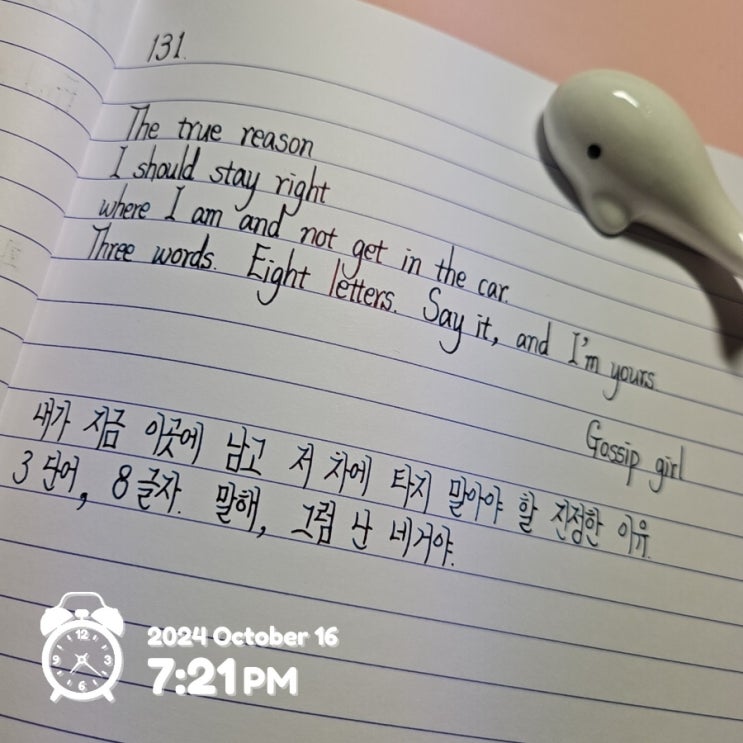 131.
The true reason
I should stay right
where I am and not get in the car.
Three words. Eight letters. Say it, and I'm yours
Gossip girl
내가 지금 이곳에 남고 저 차에 타지 말아야 할 진정한 이유.
3 단어, 8 글자. 말해, 그럼 난 네거야.
2024 October 16
7:21 PM